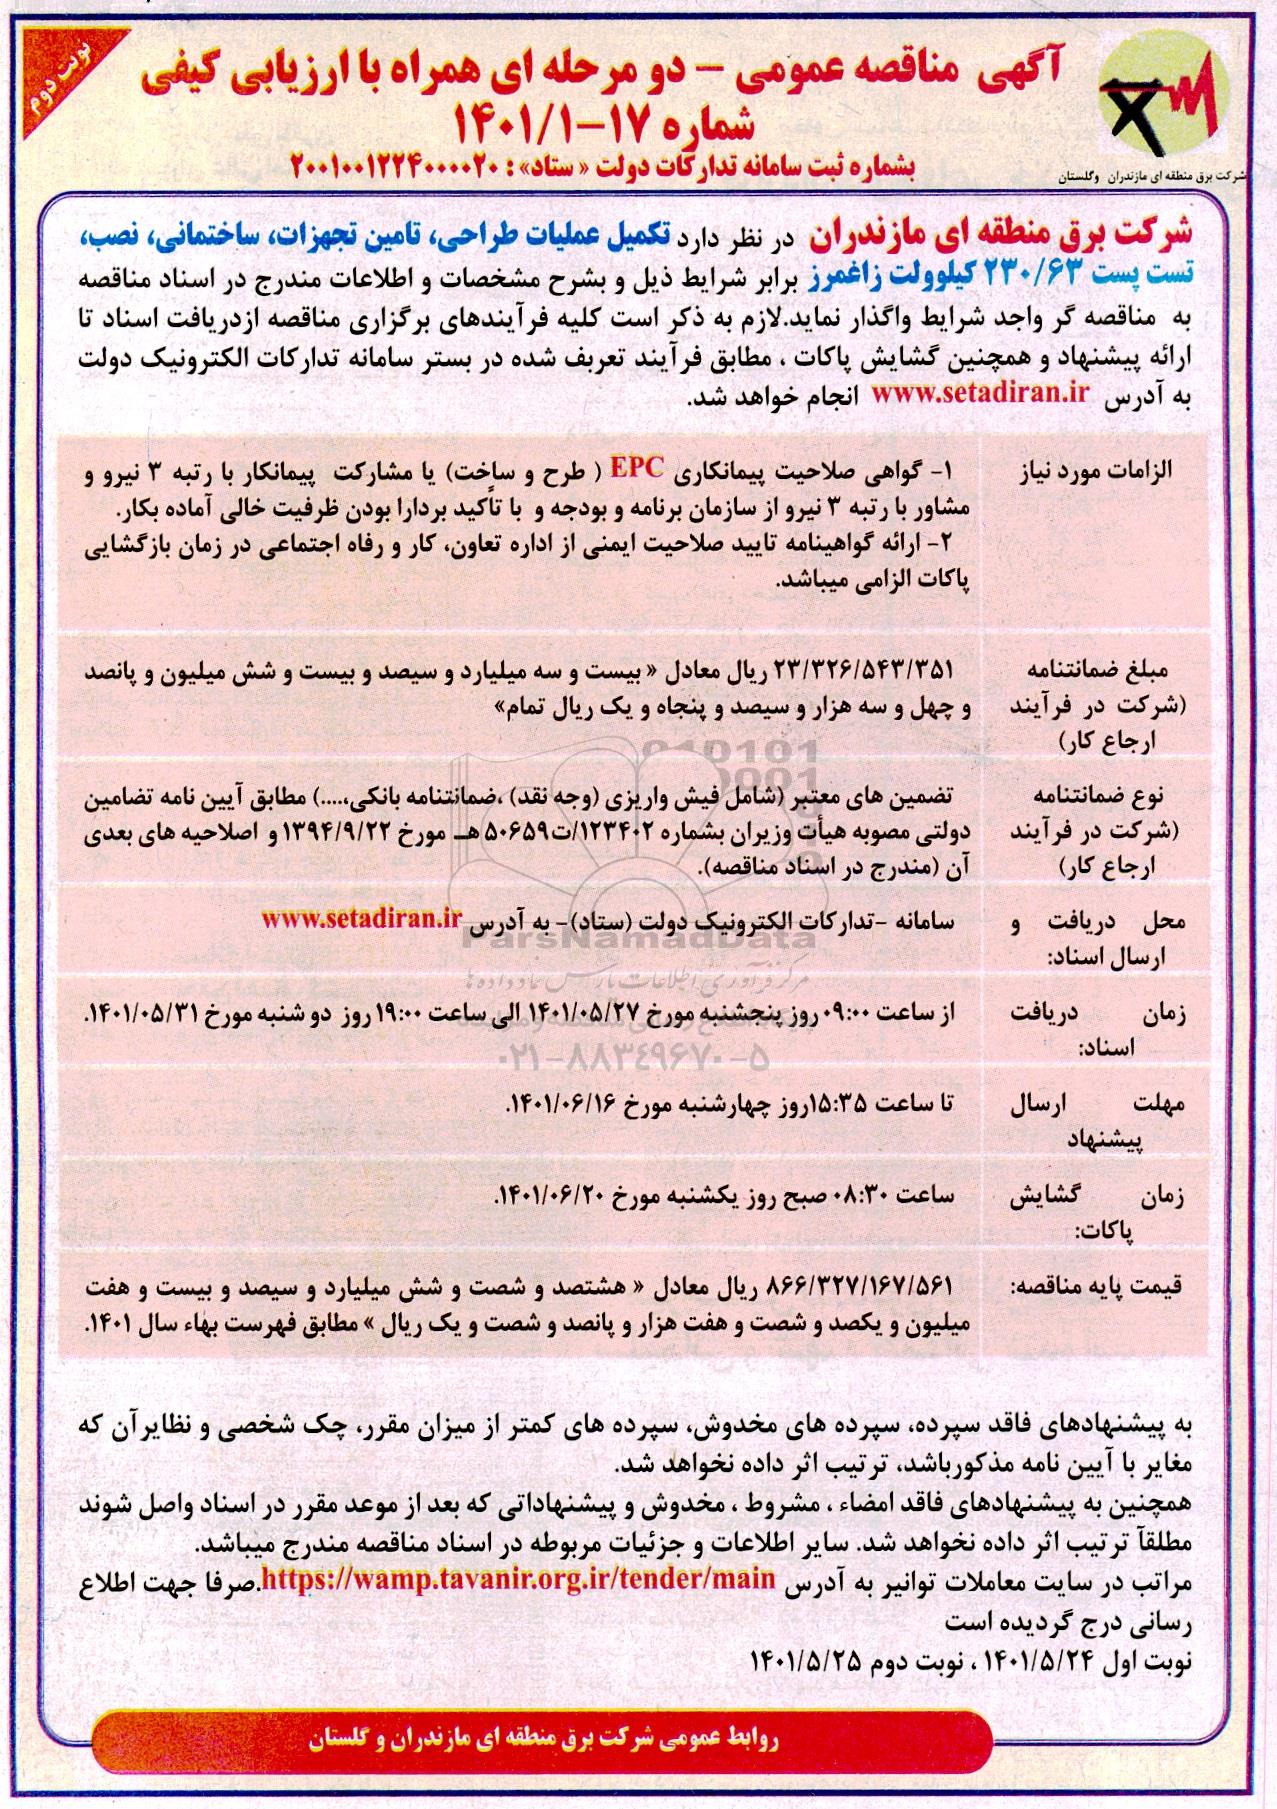 نوبت دوم
آگهی مناقصه عمومی – دو مرحله ای همراه با ارزیابی کیفی
شماره ۱۷-۱۴۰۱/۱
بشماره ثبت سامانه تدارکات دولت « ستاد» : ۲۰۰۱۰۰۱۲۲۴۰۰۰۰۲۰
شرکت برق منطقه ای مازندران وگلستان
شرکت برق منطقه ای مازندران در نظر دارد تکمیل عملیات طراحی، تامین تجهزات، ساختمانی، نصب،
تست پست ۲۳۰/۶۳ کیلوولت زاغمرز برابر شرایط ذیل و بشرح مشخصات و اطلاعات مندرج در اسناد مناقصه
به مناقصه گر واجد شرایط واگذار نماید.لازم به ذکر است کلیه فرآیندهای برگزاری مناقصه ازدریافت اسناد تا
ارائه پیشنهاد و همچنین گشایش پاکات ، مطابق فرآیند تعریف شده در بستر سامانه تدارکات الکترونیک دولت
به آدرس www.setadiran.ir انجام خواهد شد.
الزامات مورد نیاز
۱- گواهی صلاحیت پیمانکاری EPC ( طرح و ساخت) یا مشارکت پیمانکار با رتبه ۳ نیرو و
مشاور با رتبه ۳ نیرو از سازمان برنامه و بودجه و با تأکید بردارا بودن ظرفیت خالی آماده بکار.
۲- ارائه گواهینامه تایید صلاحیت ایمنی از اداره تعاون، کار و رفاه اجتماعی در زمان بازگشایی
پاکات الزامی میباشد.
مبلغ ضمانتنامه
(شرکت در فرآیند
ارجاع کار)
۲۳/۳۲۶/۵۴۳/۳۵۱ ریال معادل « بیست و سه میلیارد و سیصد و بیست و شش میلیون و پانصد
و چهل و سه هزار و سیصد و پنجاه و یک ریال تمام»
نوع ضمانتنامه
(شرکت در فرآیند
ارجاع کار)
تضمین های معتبر (شامل فیش واریزی (وجه نقد) ،ضمانتنامه بانکی،....) مطابق آیین نامه تضامین
دولتی مصوبه هیأت وزیران بشماره ۱۲۳۴۰۲/ت۵۰۶۵۹هـ مورخ ۱۳۹۴/۹/۲۲ و اصلاحیه های بعدی
آن (مندرج در اسناد مناقصه).
محل دریافت و
ارسال اسناد:
سامانه -تدارکات الکترونیک دولت (ستاد)- به آدرس www.setadiran.ir
ParsNamadData
مرکز فرآوری اطلاعات پارس نماد داده ها
زمان دریافت
اسناد:
از ساعت ۰۹:۰۰روز پنجشنبه مورخ ۱۴۰۱/۰۵/۲۷ الی ساعت ۱۹:۰۰روز دو شنبه مورخ ۱۴۰۱/۰۵/۳۱.
۰۲۱-۸۸۳۴۹۶۷۰-۵
مهلت ارسال
پیشنهاد
تا ساعت ۱۵:۳۵روز چهارشنبه مورخ ۱۴۰۱/۰۶/۱۶.
زمان گشایش
پاکات:
ساعت ۰۸:۳۰ صبح روز یکشنبه مورخ ۱۴۰۱/۰۶/۲۰.
قیمت پایه مناقصه:
۸۶۶/۳۲۷/۱۶۷/۵۶۱ ریال معادل « هشتصد و شصت و شش میلیارد و سیصد و بیست و هفت
میلیون و یکصد و شصت و هفت هزار و پانصد و شصت و یک ریال » مطابق فهرست بهاء سال ۱۴۰۱.
به پیشنهادهای فاقد سپرده، سپرده های مخدوش، سپرده های کمتر از میزان مقرر، چک شخصی و نظایرآن که
مغایر با آیین نامه مذکورباشد، ترتیب اثر داده نخواهد شد.
همچنین به پیشنهادهای فاقد امضاء ، مشروط ، مخدوش و پیشنهاداتی که بعد از موعد مقرر در اسناد واصل شوند
مطلقآ ترتیب اثر داده نخواهد شد. سایر اطلاعات و جزئیات مربوطه در اسناد مناقصه مندرج میباشد.
مراتب در سایت معاملات توانیر به آدرس https://wamp.tavanir.org.ir/tender/main.صرفا جهت اطلاع
رسانی درج گردیده است
نوبت اول ۱۴۰۱/۵/۲۴ ، نوبت دوم ۱۴۰۱/۵/۲۵
روابط عمومی شرکت برق منطقه ای مازندران و گلستان